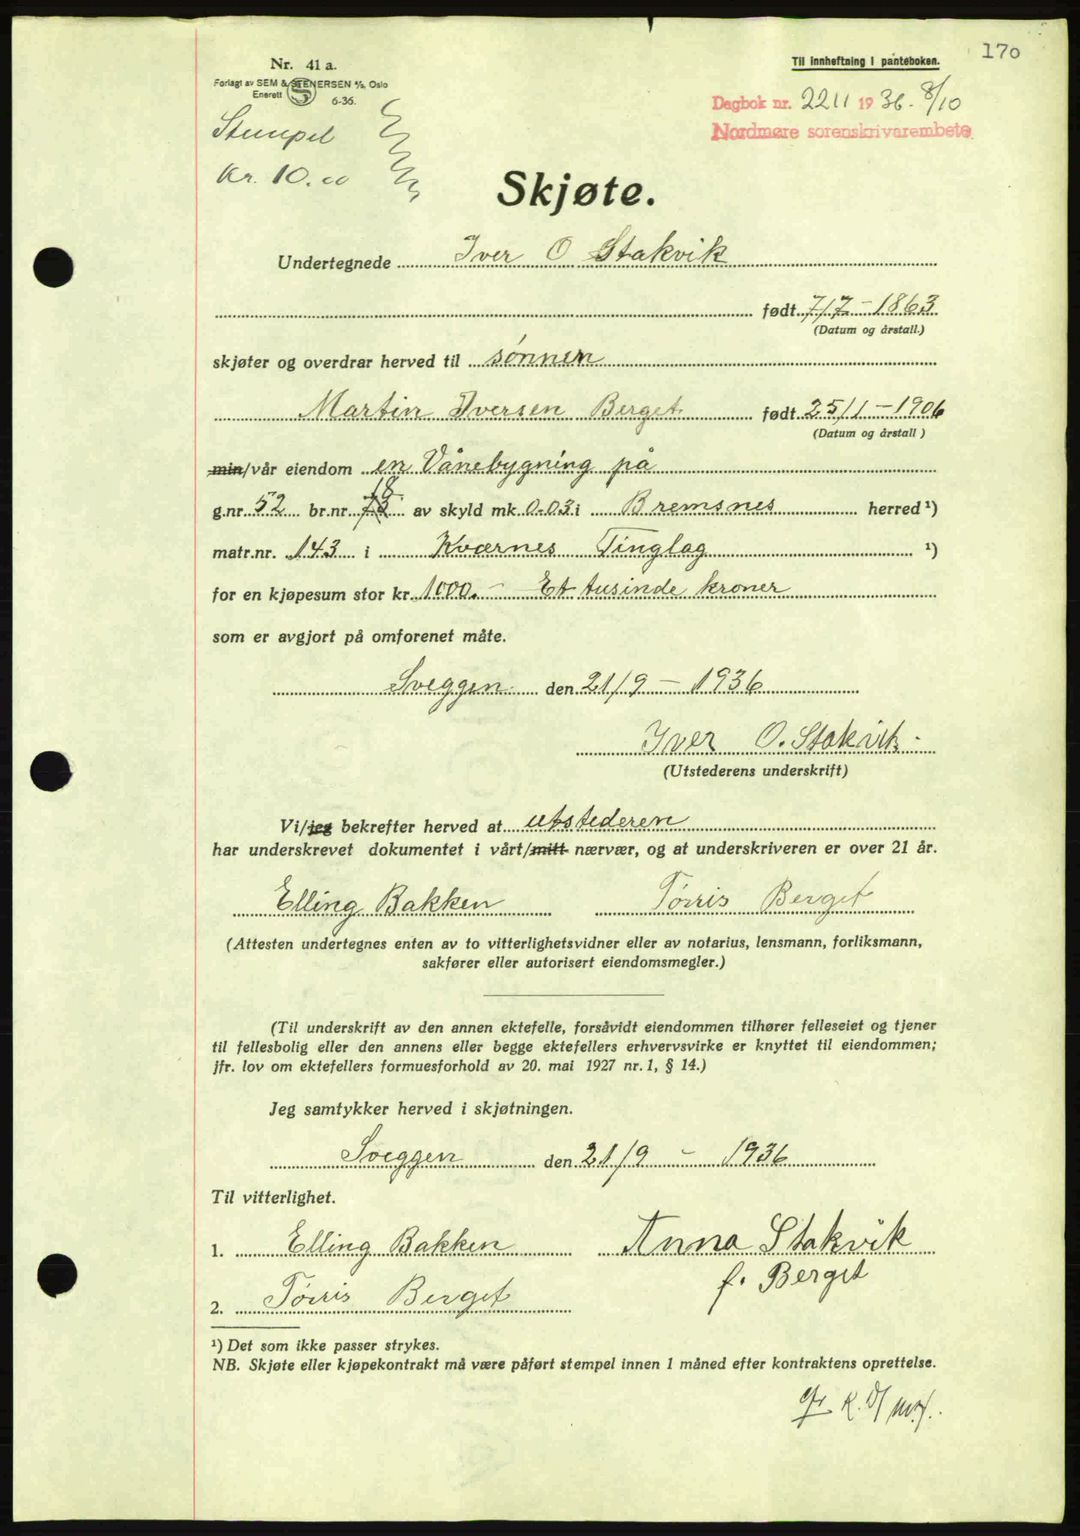 170
Nr. 41 a.
Forlagt av SEM & STENERSEN A/S, Oslo
Enerett 6-36.
Til innheftning i panteboken.
Dagbok nr. 2211 1936. 8/10
Nordmøre sorenskriverembete
Stempel
Kr. 10.00
Skjøte.
Undertegnede Iver O Stakvik
født 7/7 - 1863
(Datum og årstall.)
skjøter og overdrar herved til sønnen
Martin Iversen Berget født 25/1 - 1906
(Datum og årstall)
min/vår eiendom en Vånebygning på
18
g.nr. 52 br.nr. 73 av skyld mk 0.03 i Bremsnes herred ¹)
matr.nr. 143 i Kværnes Tinglag ¹)
for en kjøpesum stor kr. 1000.- Et tusinde kroner
som er avgjort på omforenet måte.
Sveggen den 21/9 - 1936
Iver O. Stakvik.
(Utstederens underskrift)
Vi/jeg bekrefter herved at utstederen
har underskrevet dokumentet i vårt/mitt nærvær, og at underskriveren er over 21 år.
Elling Bakken Tørris Berget
(Attesten undertegnes enten av to vitterlighetsvidner eller av notarius, lensmann, forliksmann,
sakfører eller autorisert eiendomsmegler.)
(Til underskrift av den annen ektefelle, forsåvidt eiendommen tilhører felleseiet og tjener
til fellesbolig eller den annens eller begge ektefellers erhvervsvirke er knyttet til eiendommen;
jfr. lov om ektefellers formuesforhold av 20. mai 1927 nr. 1, § 14.)
Jeg samtykker herved i skjøtningen.
Sveggen den 21/9 - 1936
Til vitterlighet.
1. Elling Bakken Anna Stakvik
f. Berget
2. Tørris Berget
¹) Det som ikke passer strykes.
NB. Skjøte eller kjøpekontrakt må være påført stempel innen 1 måned efter kontraktens oprettelse.